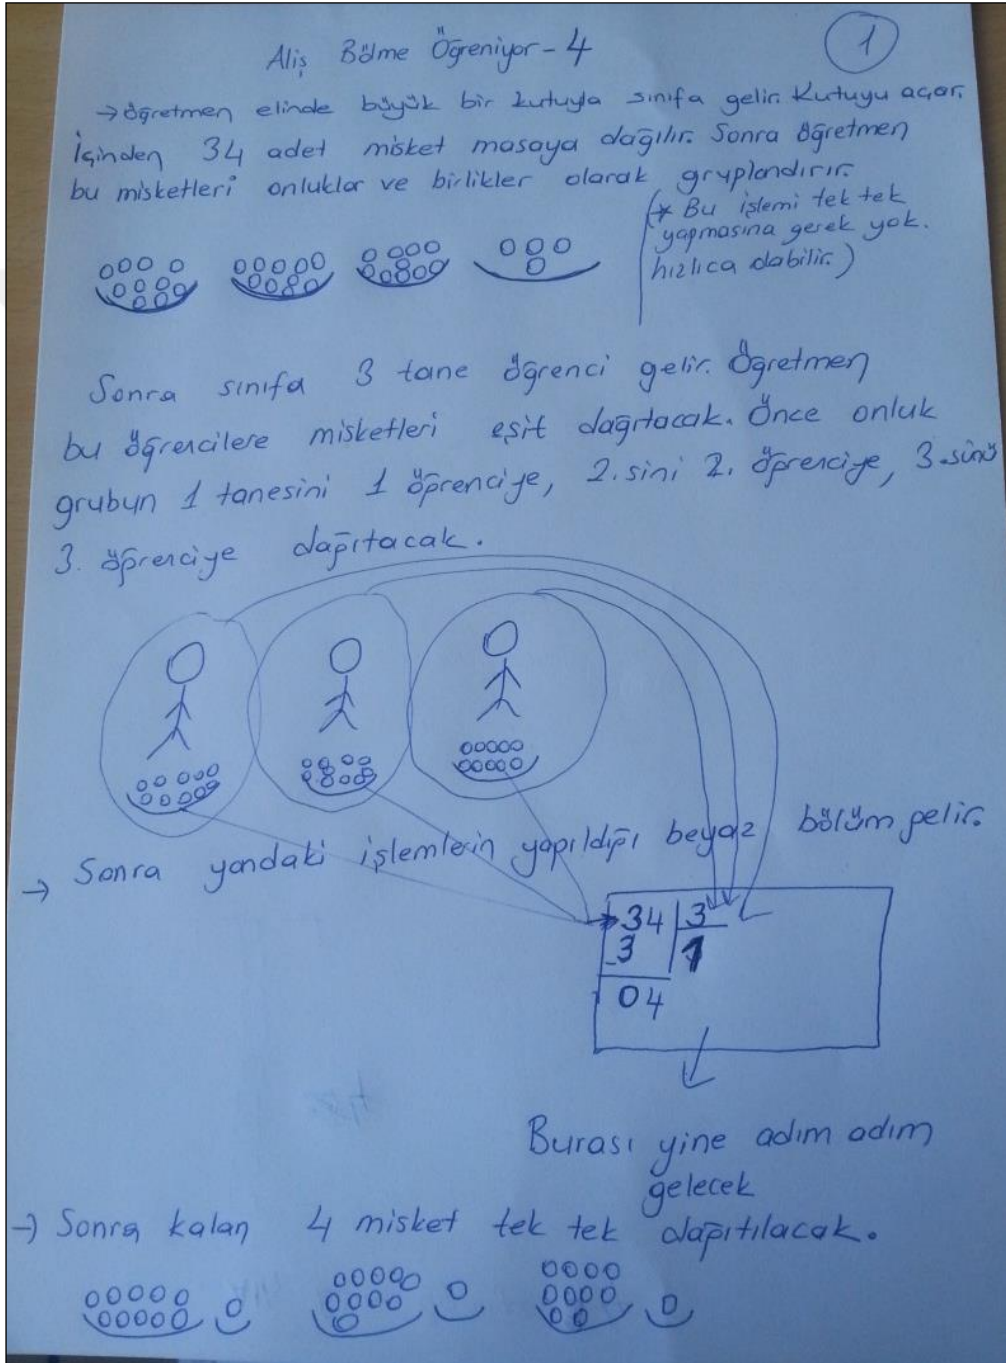 Aliş Bölme Öğreniyor - 4
1
→ öğretmen elinde büyük bir kutuyla sınıfa gelir. Kutuyu açar.
İçinden 34 adet misket masaya dağılır. Sonra öğretmen
bu misketleri onluklar ve birlikler olarak gruplandırır.
(* Bu işlemi tek tek
yapmasına gerek yok.
hızlıca olabilir.)
Sonra sınıfa 3 tane öğrenci gelir. Öğretmen
bu öğrencilere misketleri eşit dağıtacak. Önce onluk
grubun 1 tanesini 1 öğrenciye, 2.sini 2. öğrenciye, 3.sünü
3. öğrenciye dağıtacak.
→ Sonra yandaki işlemlerin yapıldığı beyaz bölüm gelir.
34 | 3
-3 | 1
04
Burası yine adım adım
gelecek
→ Sonra kalan 4 misket tek tek dağıtılacak.